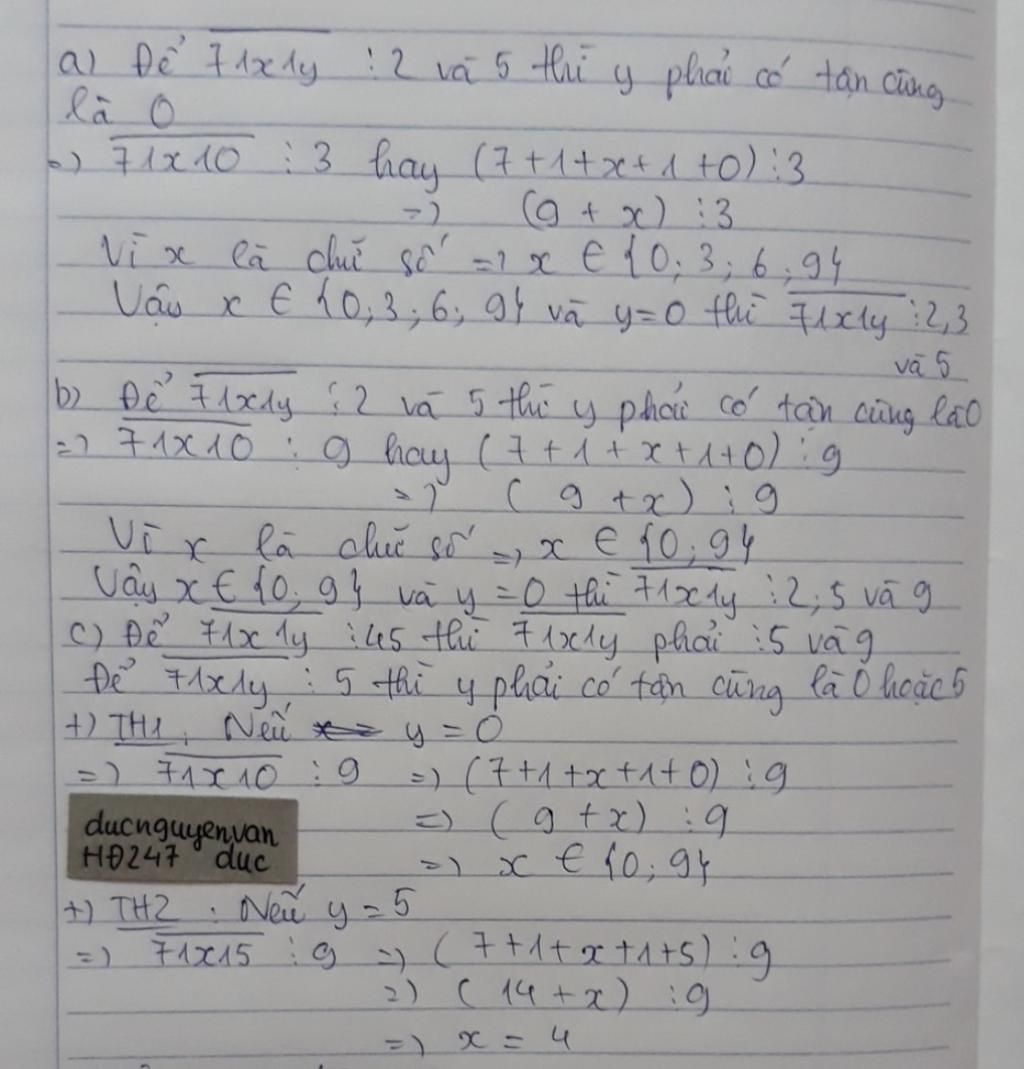 a) Để 71x1y ⋮ 2 và 5 thì y phải có tận cùng
là 0
71x10 ⋮ 3 hay (7+1+x+1+0) ⋮ 3
=> (9 + x) ⋮ 3
Vì x là chữ số => x ∈ {0; 3; 6; 9}
Vậy x ∈ {0; 3; 6; 9} và y=0 thì 71x1y ⋮ 2,3
và 5
b) Để 71x1y ⋮ 2 và 5 thì y phải có tận cùng là 0
=> 71x10 ⋮ 9 hay (7+1+x+1+0) ⋮ 9
=> (9 + x) ⋮ 9
Vì x là chữ số => x ∈ {0; 9}
Vậy x ∈ {0; 9} và y = 0 thì 71x1y ⋮ 2; 5 và 9
c) Để 71x1y ⋮ 45 thì 71x1y phải ⋮ 5 và 9
Để 71x1y ⋮ 5 thì y phải có tận cùng là 0 hoặc 5
+) TH1: Nếu y = 0
=> 71x10 ⋮ 9 => (7+1+x+1+0) ⋮ 9
=> (9 + x) ⋮ 9
ducnguyenvan
HĐ247 duc
=> x ∈ {0; 9}
+) TH2: Nếu y = 5
=> 71x15 ⋮ 9 => (7+1+x+1+5) ⋮ 9
=> (14 + x) ⋮ 9
=> x = 4